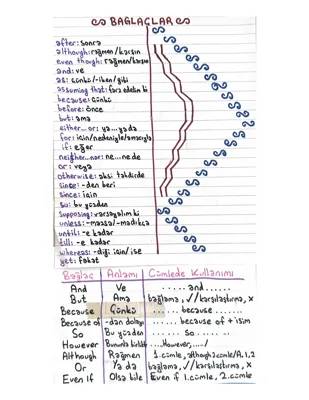 BAĞLAÇLAR
after: sonra
although: rağmen/karşın
even though: rağmen/karşın
and: ve
as: çünkü/-iken/gibi
assuming that: farz edelim ki
because: çünkü
before: önce
but: ama
either...or: ya...ya da
for: için/nedeniyle/amacıyla
if: eğer
neither...nor: ne...ne de
or: veya
otherwise: aksi takdirde
since: -den beri
since: için
so: bu yüzden
supposing: varsayalım ki
unless: -massa/-madıkça
until: -e kadar
till: -e kadar
whereas: -diği için/ise
yet: fakat
Bağlaç Anlamı Cümlede Kullanımı
And Ve ..... and ......
But Ama bağlama, ✓/karşılaştırma, x
Because Çünkü ...... because .......
Because of -dan dolayı ...... because of + isim
So Bu yüzden ...... so .....
However Bununla birlikte ....However,...../
Although Rağmen 1.cümle, although 2.cümle/A, 1, 2
Or Ya da bağlama, ✓/karşılaştırma x
Even If Olsa bile Even if 1.cümle, 2.cümle